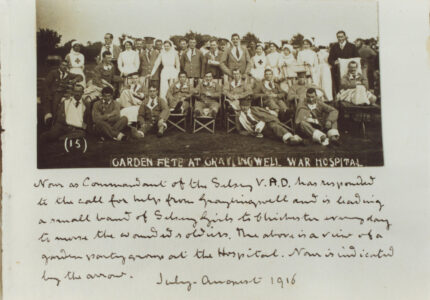 (15)
GARDEN FETE AT GRAYLINGWELL WAR HOSPITAL
Nora as Commandant of the Selsey V.A.D. has responded
to the call for help from Graylingwell and is leading
a small band of Selsey Girls to Chichester every day
to nurse the wounded soldiers. The above is a view of a
garden party group at the Hospital. Nora is indicated
by the arrow. July-August 1916